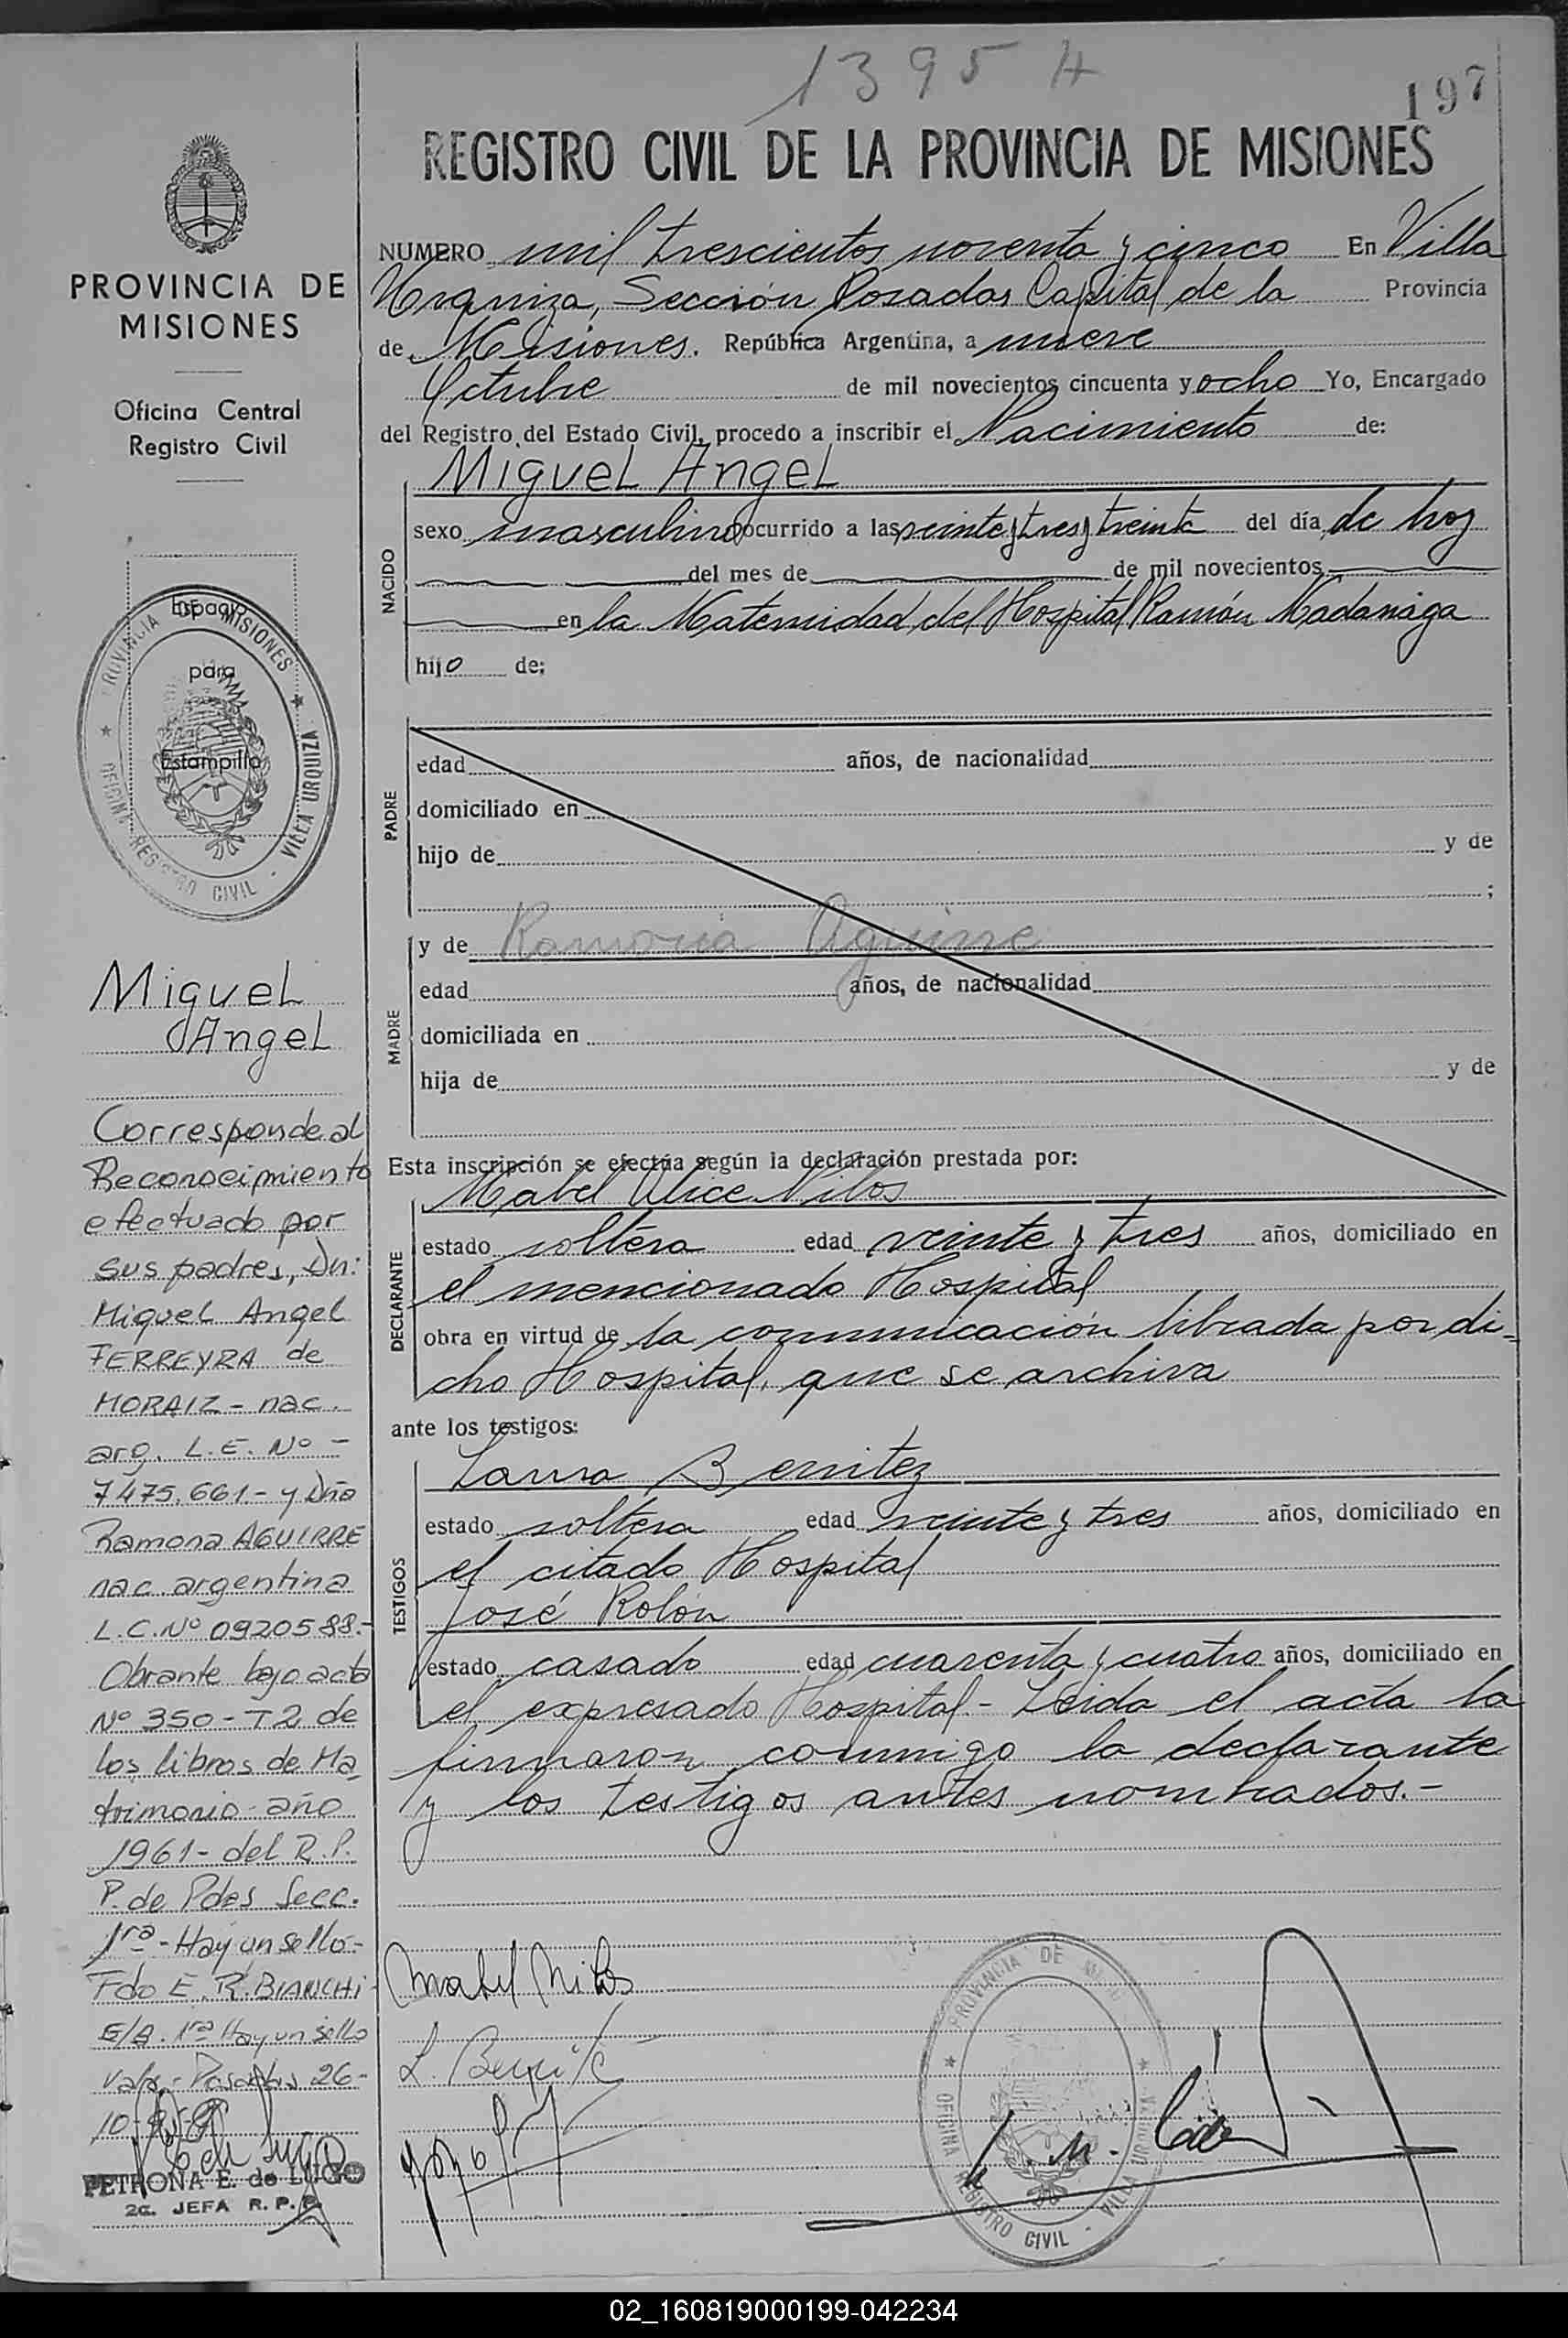 1395 H
197
REGISTRO CIVIL DE LA PROVINCIA DE MISIONES
NUMERO mil trescientos noventa y cinco En Villa
Urquiza, Sección Posadas Capital de la Provincia
de Misiones. República Argentina, a nueve
Octubre de mil novecientos cincuenta y ocho Yo, Encargado
del Registro del Estado Civil, procedo a inscribir el Nacimiento de:
NACIDO
Miguel Angel
sexo masculino ocurrido a las veinte y tres y treinta del día de hoy
del mes de de mil novecientos
en la Maternidad del Hospital Ramón Madariaga
hijo de:
PADRE
edad años, de nacionalidad
domiciliado en
hijo de y de
;
MADRE
y de Ramona Aguirre
edad años, de nacionalidad
domiciliada en
hija de y de
Esta inscripción se efectúa según la declaración prestada por:
DECLARANTE
Mabel Alice Nilos
estado soltera edad veinte y tres años, domiciliado en
el mencionado Hospital
obra en virtud de la comunicación librada por di-
cho Hospital, que se archiva
ante los testigos:
TESTIGOS
Laura Benitez
estado soltera edad veinte y tres años, domiciliado en
el citado Hospital
José Rolón
estado casado edad cuarenta y cuatro años, domiciliado en
el expresado Hospital.- Leida el acta la
firmaron conmigo la declarante
y los testigos antes nombrados.-
Mabel Nilos
L. Benitez
PROVINCIA DE MISIONES
OFICINA REGISTRO CIVIL - VILLA URQUIZA
PROVINCIA DE
MISIONES
Oficina Central
Registro Civil
Espacio
para
Estampilla
PROVINCIA DE MISIONES
OFICINA REGISTRO CIVIL - VILLA URQUIZA
Miguel
Angel
Corresponde al
Reconocimiento
efectuado por
sus padres, Dn:
Miguel Angel
FERREYRA de
MORAIZ - nac.
arg. L.E. Nº -
7475.661.- y Dña
Ramona AGUIRRE
nac. argentina
L.C. Nº 0920588.-
Obrante bajo acta
Nº 350 - T2 de
los libros de Ma-
trimonio - año
1961 - del R.P.
P. de Pdas Secc.
1ra - Hay un sello.-
Fdo E. R. BIANCHI
E/A. 1ra Hay un sello
Valor.- Posadas 26-
10-
PETRONA E. de LUGO
2a. JEFA R. P. P.
02_160819000199-042234